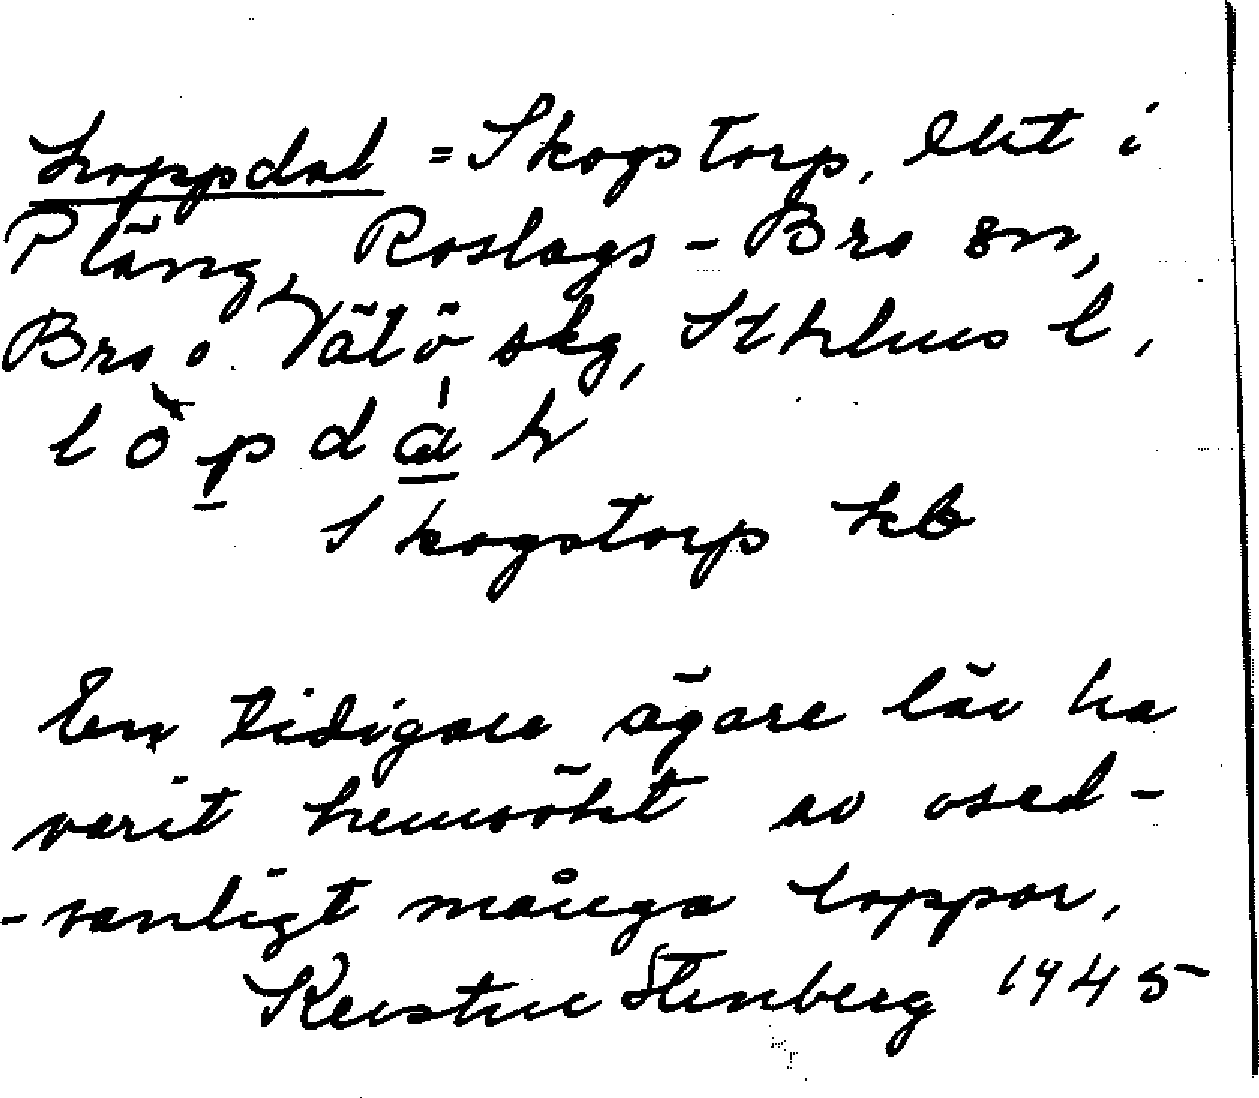 Loppdal = Skogstorp, lht i
Pläng, Roslags-Bro sn,
Bro o. Vätö skg, Sthlms l,
lòpdáꞎ
Skogstorp kb
En tidigare ägare lär ha
varit hemsökt av osed-
-vanligt många loppor,
Kerstin Stenberg 1945